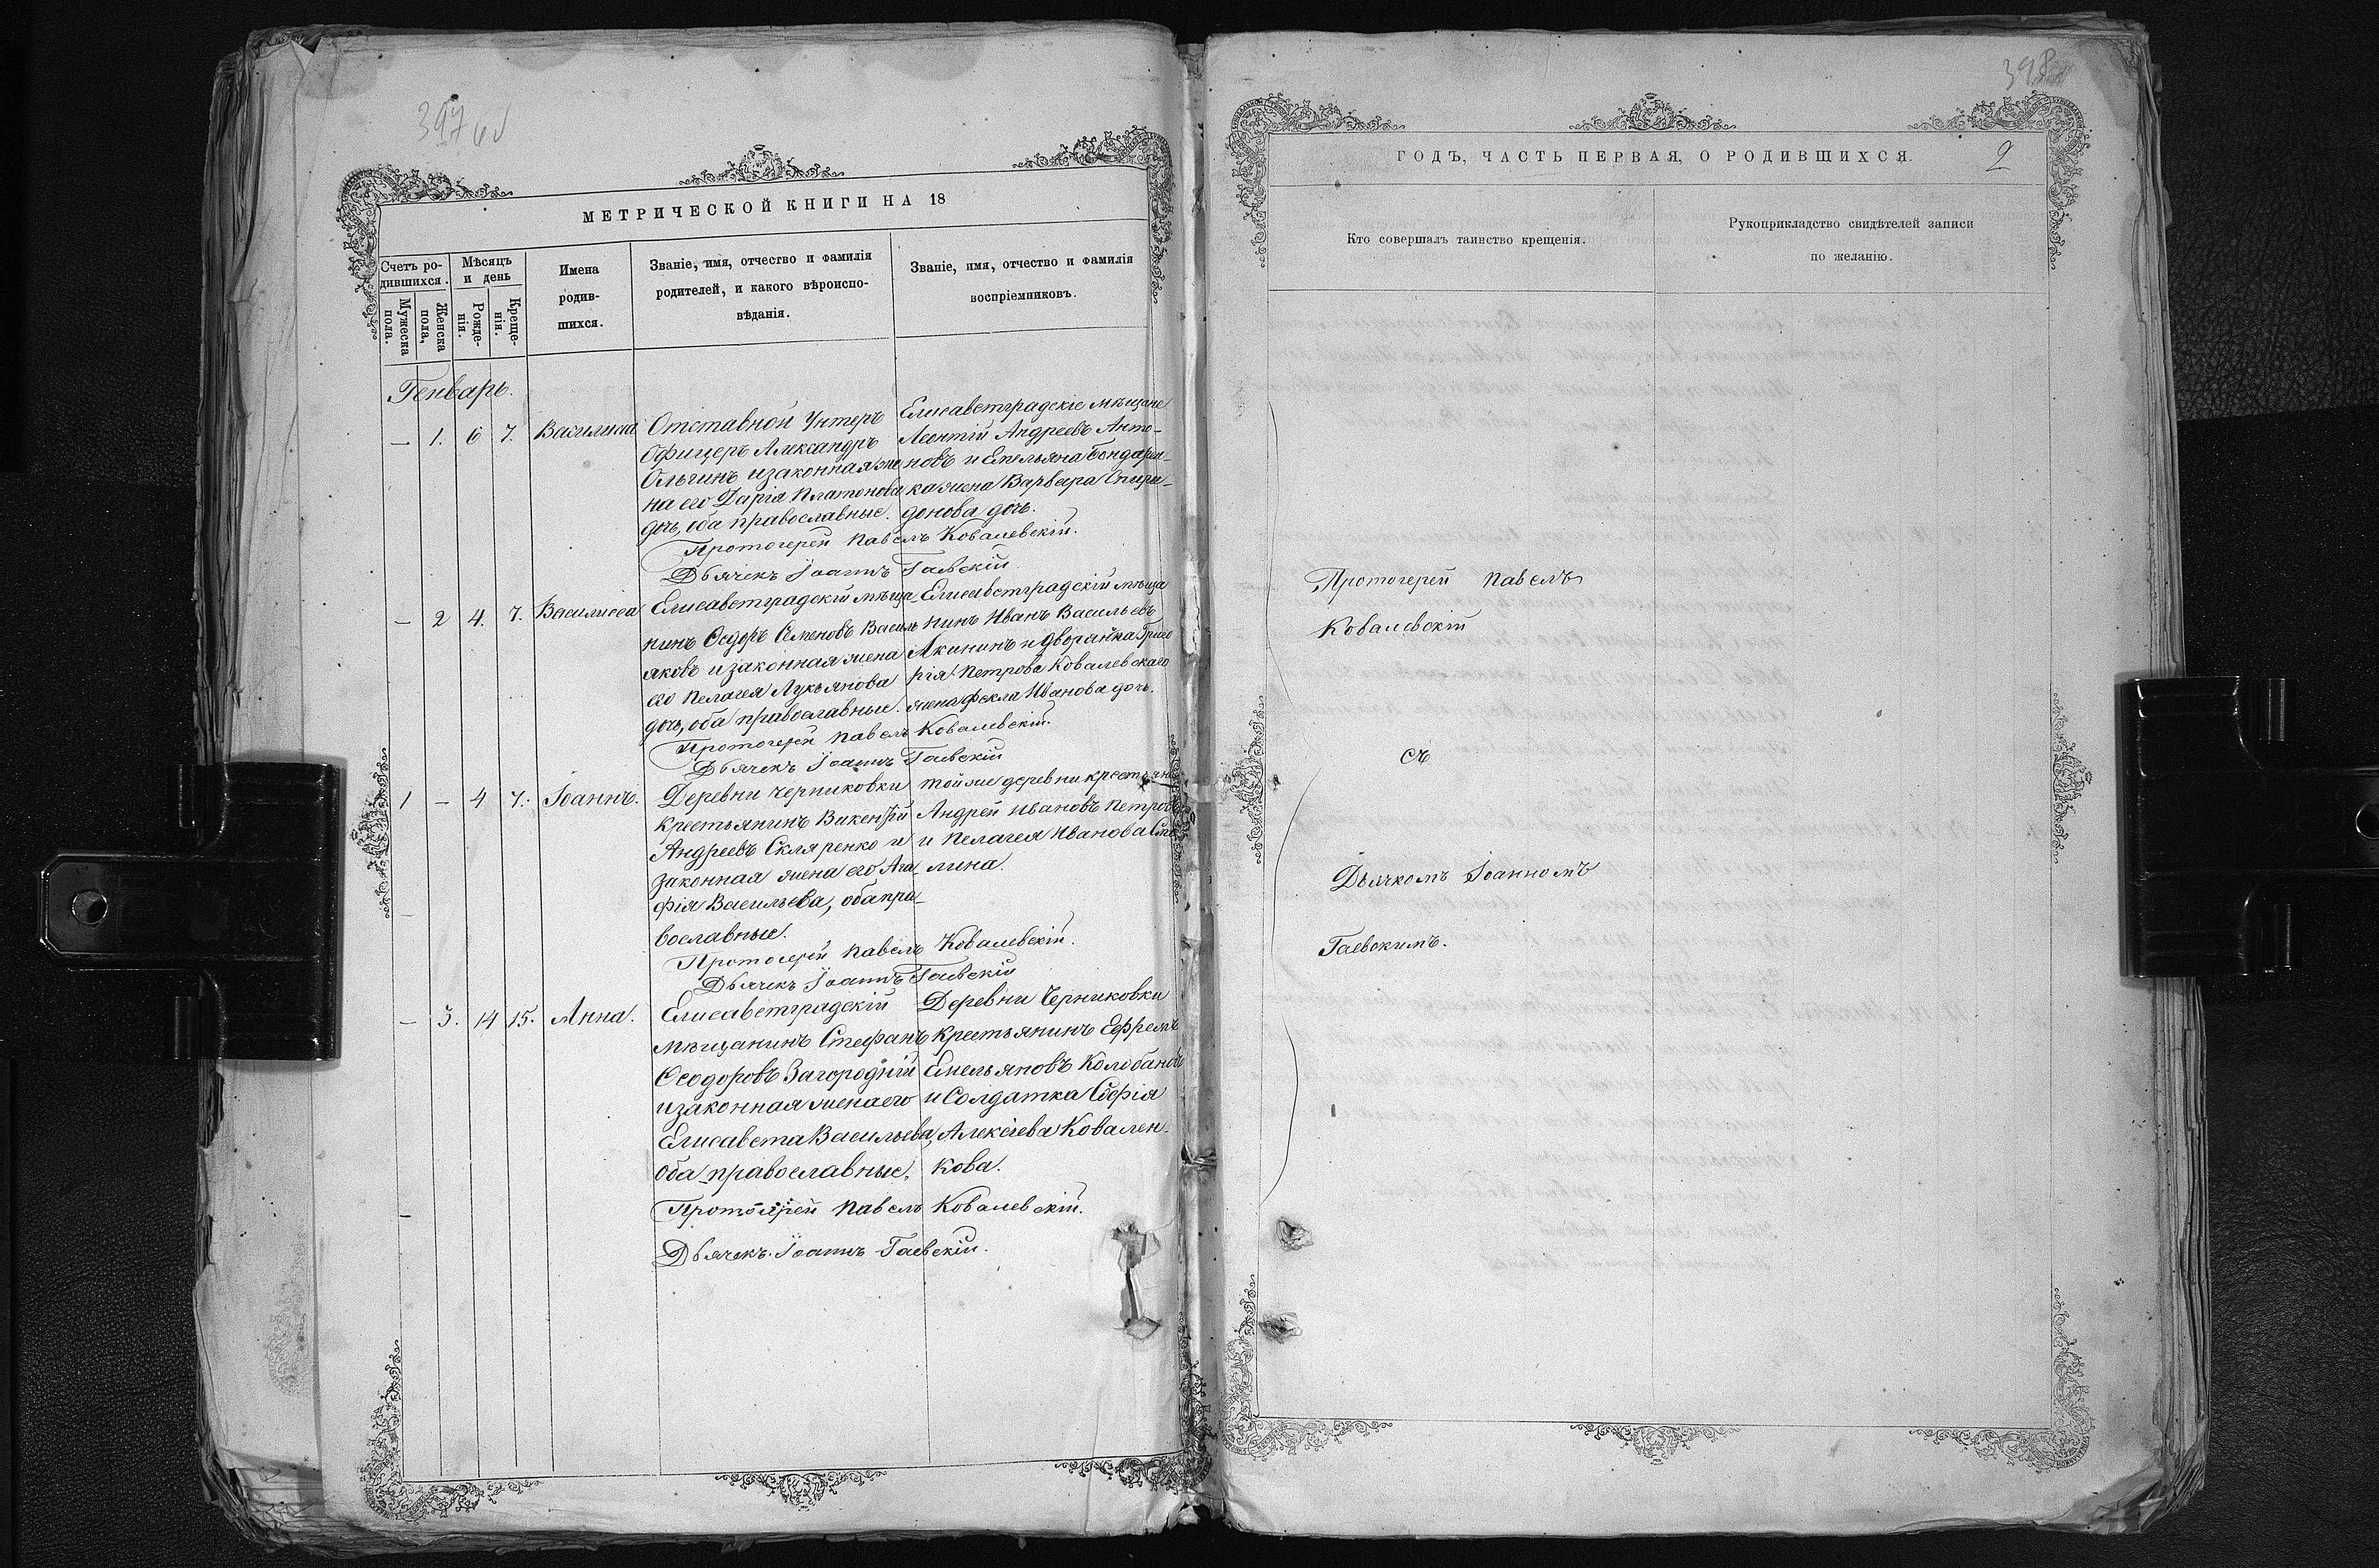 397 об
МЕТРИЧЕСКОЙ КНИГИ НА 18
Счетъ ро-
дившихся.
Мужеска
пола.
Женска
пола,
Мѣсяцъ
и день
Рожде-
нія.
Креще-
нія.
Имена
родив-
шихся.
Званіе, имя, отчество и фамилія
родителей, и какого вѣроиспо-
вѣданія.
Званіе, имя, отчество и фамилія
воспріемниковъ.
Генварь.
— 1. 6 7. Василиса
Отставной Унтеръ
Офицеръ Александръ
Ольгинъ и законная же
на его Дарія Платонова
дочь, оба православные.
Елисаветградскіе мѣщане
Леонтій Андреевъ Анто-
новъ и Емельяна Бондарен-
ка жена Варвара Спири-
донова дочь.
Протоіерей Павелъ Ковалевскій.
Дьячекъ Іоаннъ Гаевскій
— 2 4. 7. Василиса
Елисаветградскій мѣща-
нинъ Ѳеодоръ Семеновъ Василь
яковъ и законная жена
его Пелагея Лукьянова
дочь, оба православные.
Елисаветградскій мѣща
нинъ Иванъ Васильевъ
Акининъ и дворянка Григо
рія Петрова Ковалевскаго
жена Фекла Иванова дочь.
Протоіерей Павелъ Ковалевскій.
Дьячекъ Іоаннъ Гаевскій
1 — 4 7. Іоаннъ.
Деревни Черниковки
крестьянинъ Викентій
Андреевъ Скляренко и
законная жена его Ага
фія Васильева, оба пра-
вославные.
той же деревни крестьяне
Андрей Ивановъ Петровъ
и Пелагея Иванова
лина.
Протоіерей Павелъ Ковалевскій.
Дьячекъ Іоаннъ Гаевскій
— 3. 14 15. Анна.
Елисаветградскій
мѣщанинъ Стефанъ
Ѳеодоровъ Загородній
и законная жена его
Елисавета Васильева,
оба православные.
Деревни Черниковки
крестьянинъ Ефремъ
Емельяновъ Колобановъ
и Солдатка Софія
Алексіева Ковален-
кова.
Протоіерей Павелъ Ковалевскій.
Дьячекъ Іоаннъ Гаевскій.
398
ГОДЪ, ЧАСТЬ ПЕРВАЯ, О РОДИВШИХСЯ.
2
Кто совершалъ таинство крещенія.
Рукоприкладство свидѣтелей записи
по желанію.
Протоіерей Павелъ
Ковалевскій
съ
Дьячкомъ Іоанномъ
Гаевскимъ.